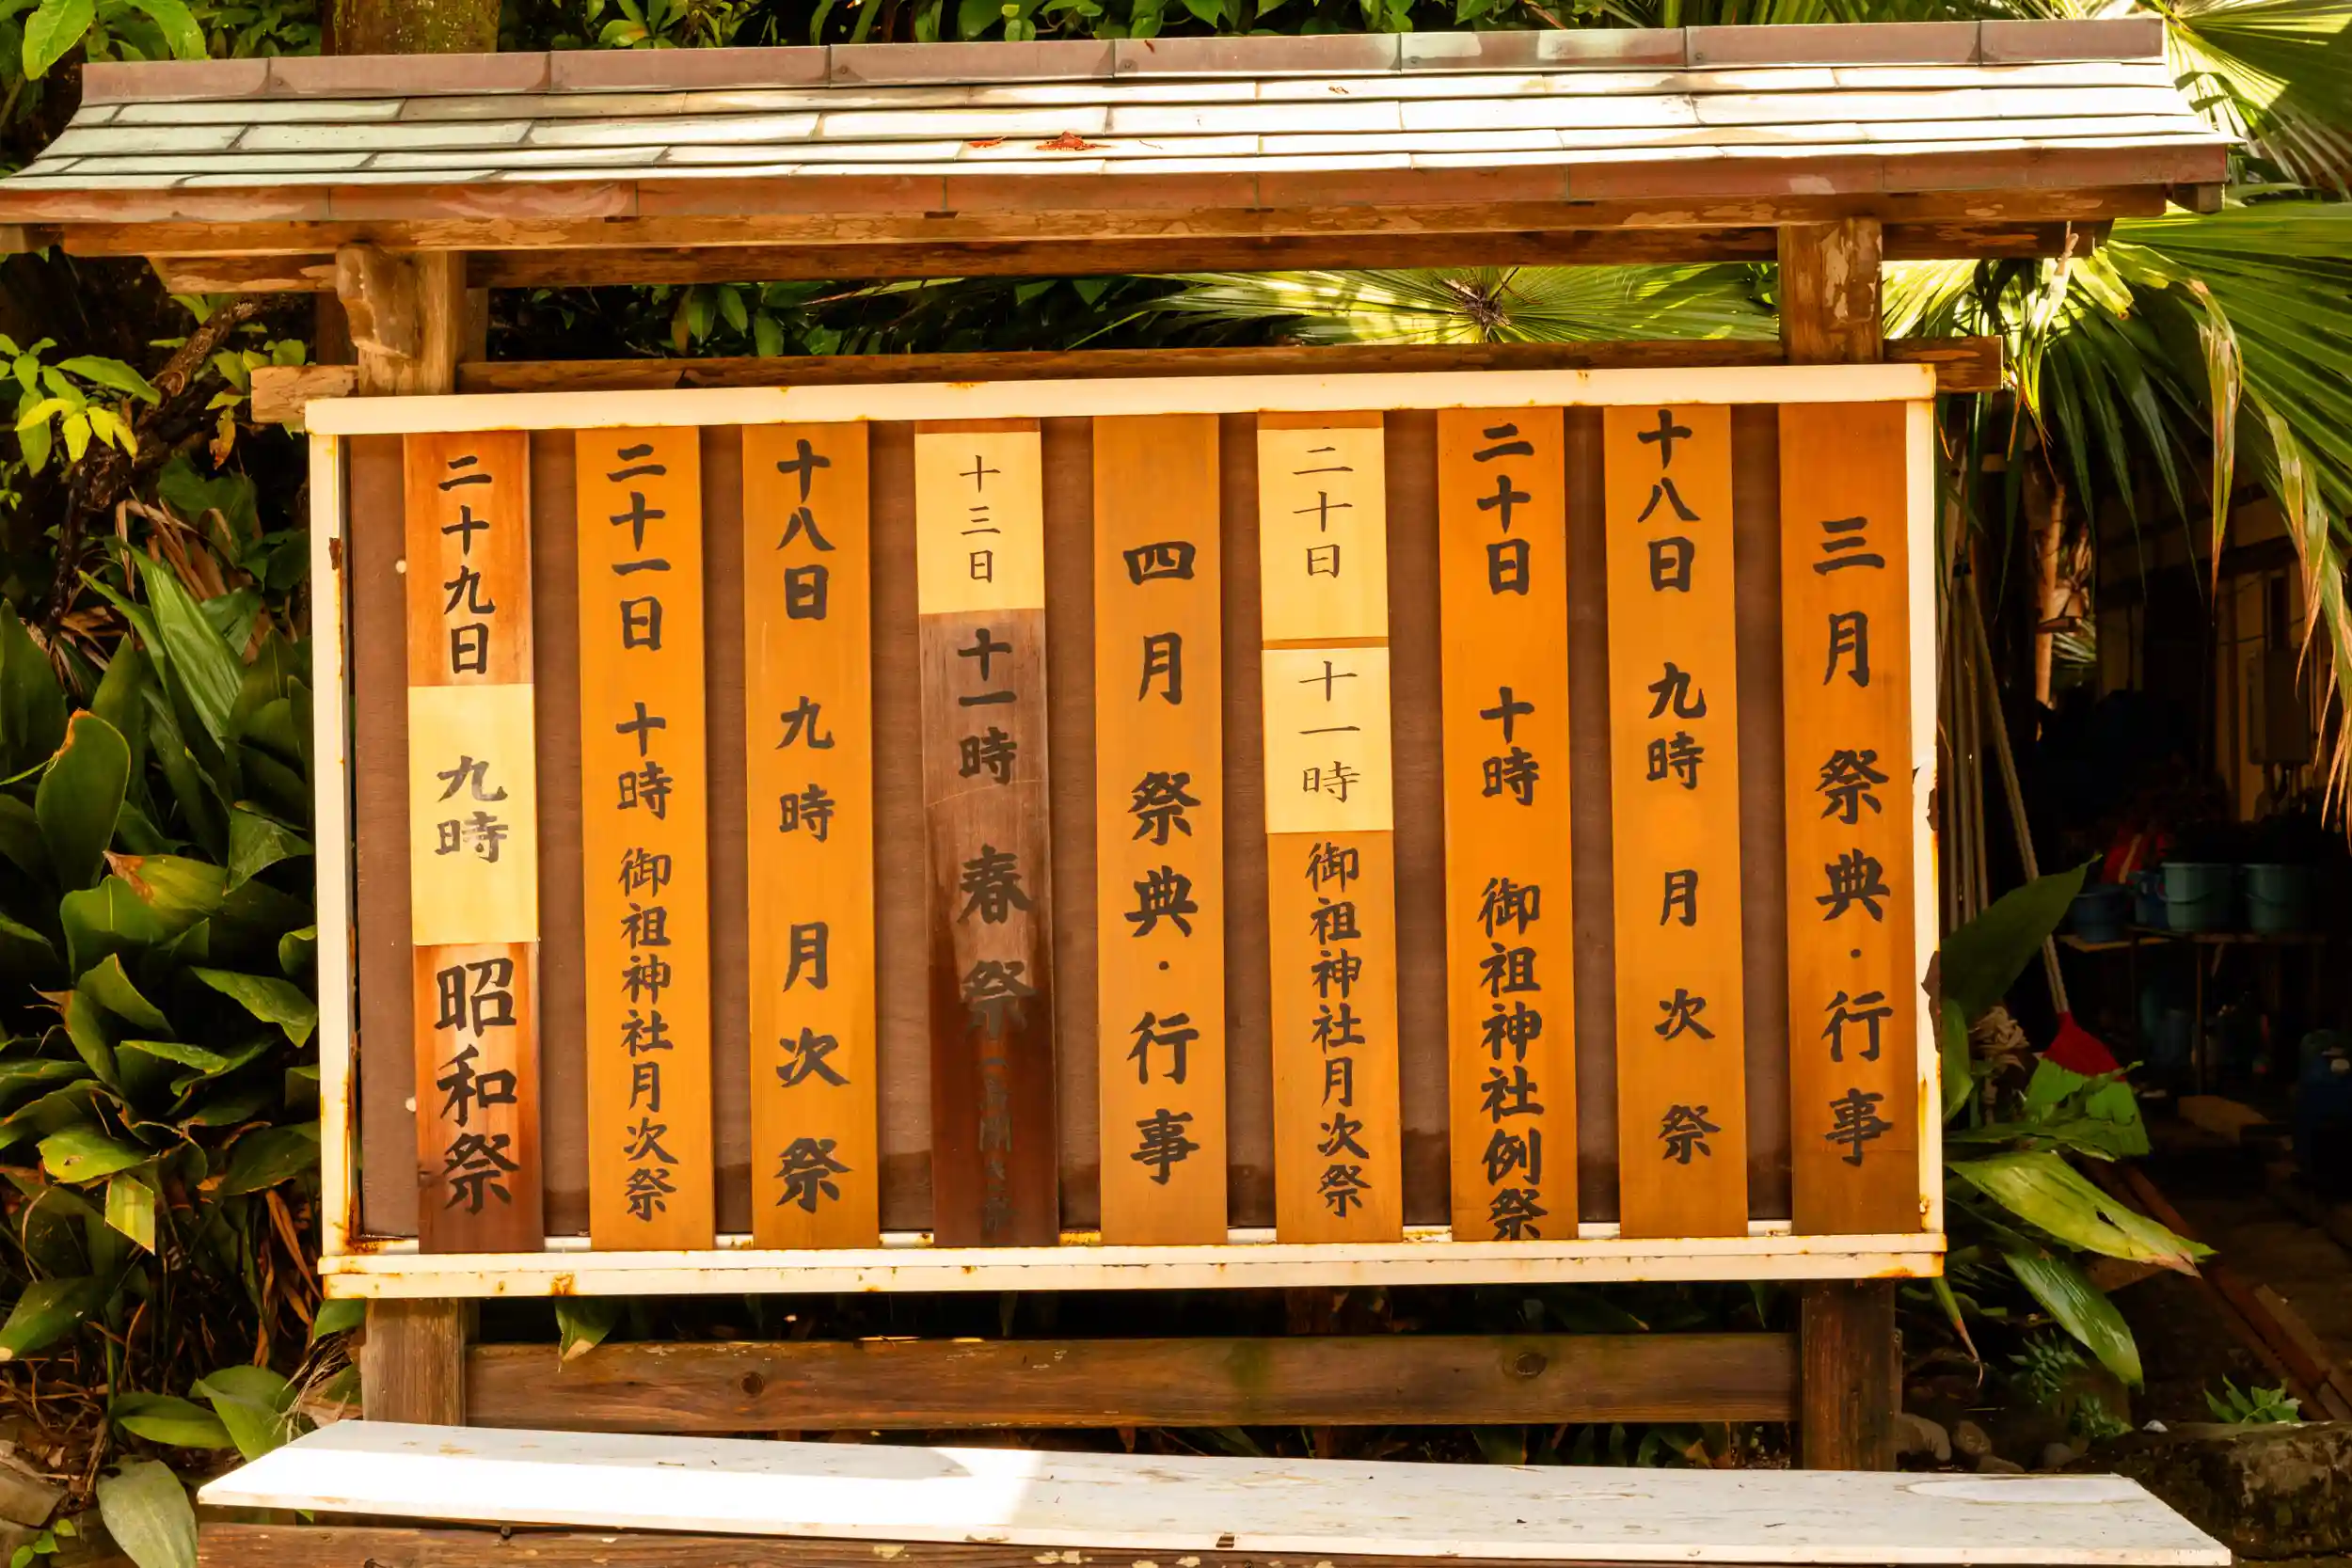 三月 祭典・行事
十八日 九時 月次祭
二十日 十時 御祖神社例祭
二十日 十一時 御祖神社月次祭
四月 祭典・行事
十三日 十一時 春祭
十八日 九時 月次祭
二十一日 十時 御祖神社月次祭
二十九日 九時 昭和祭